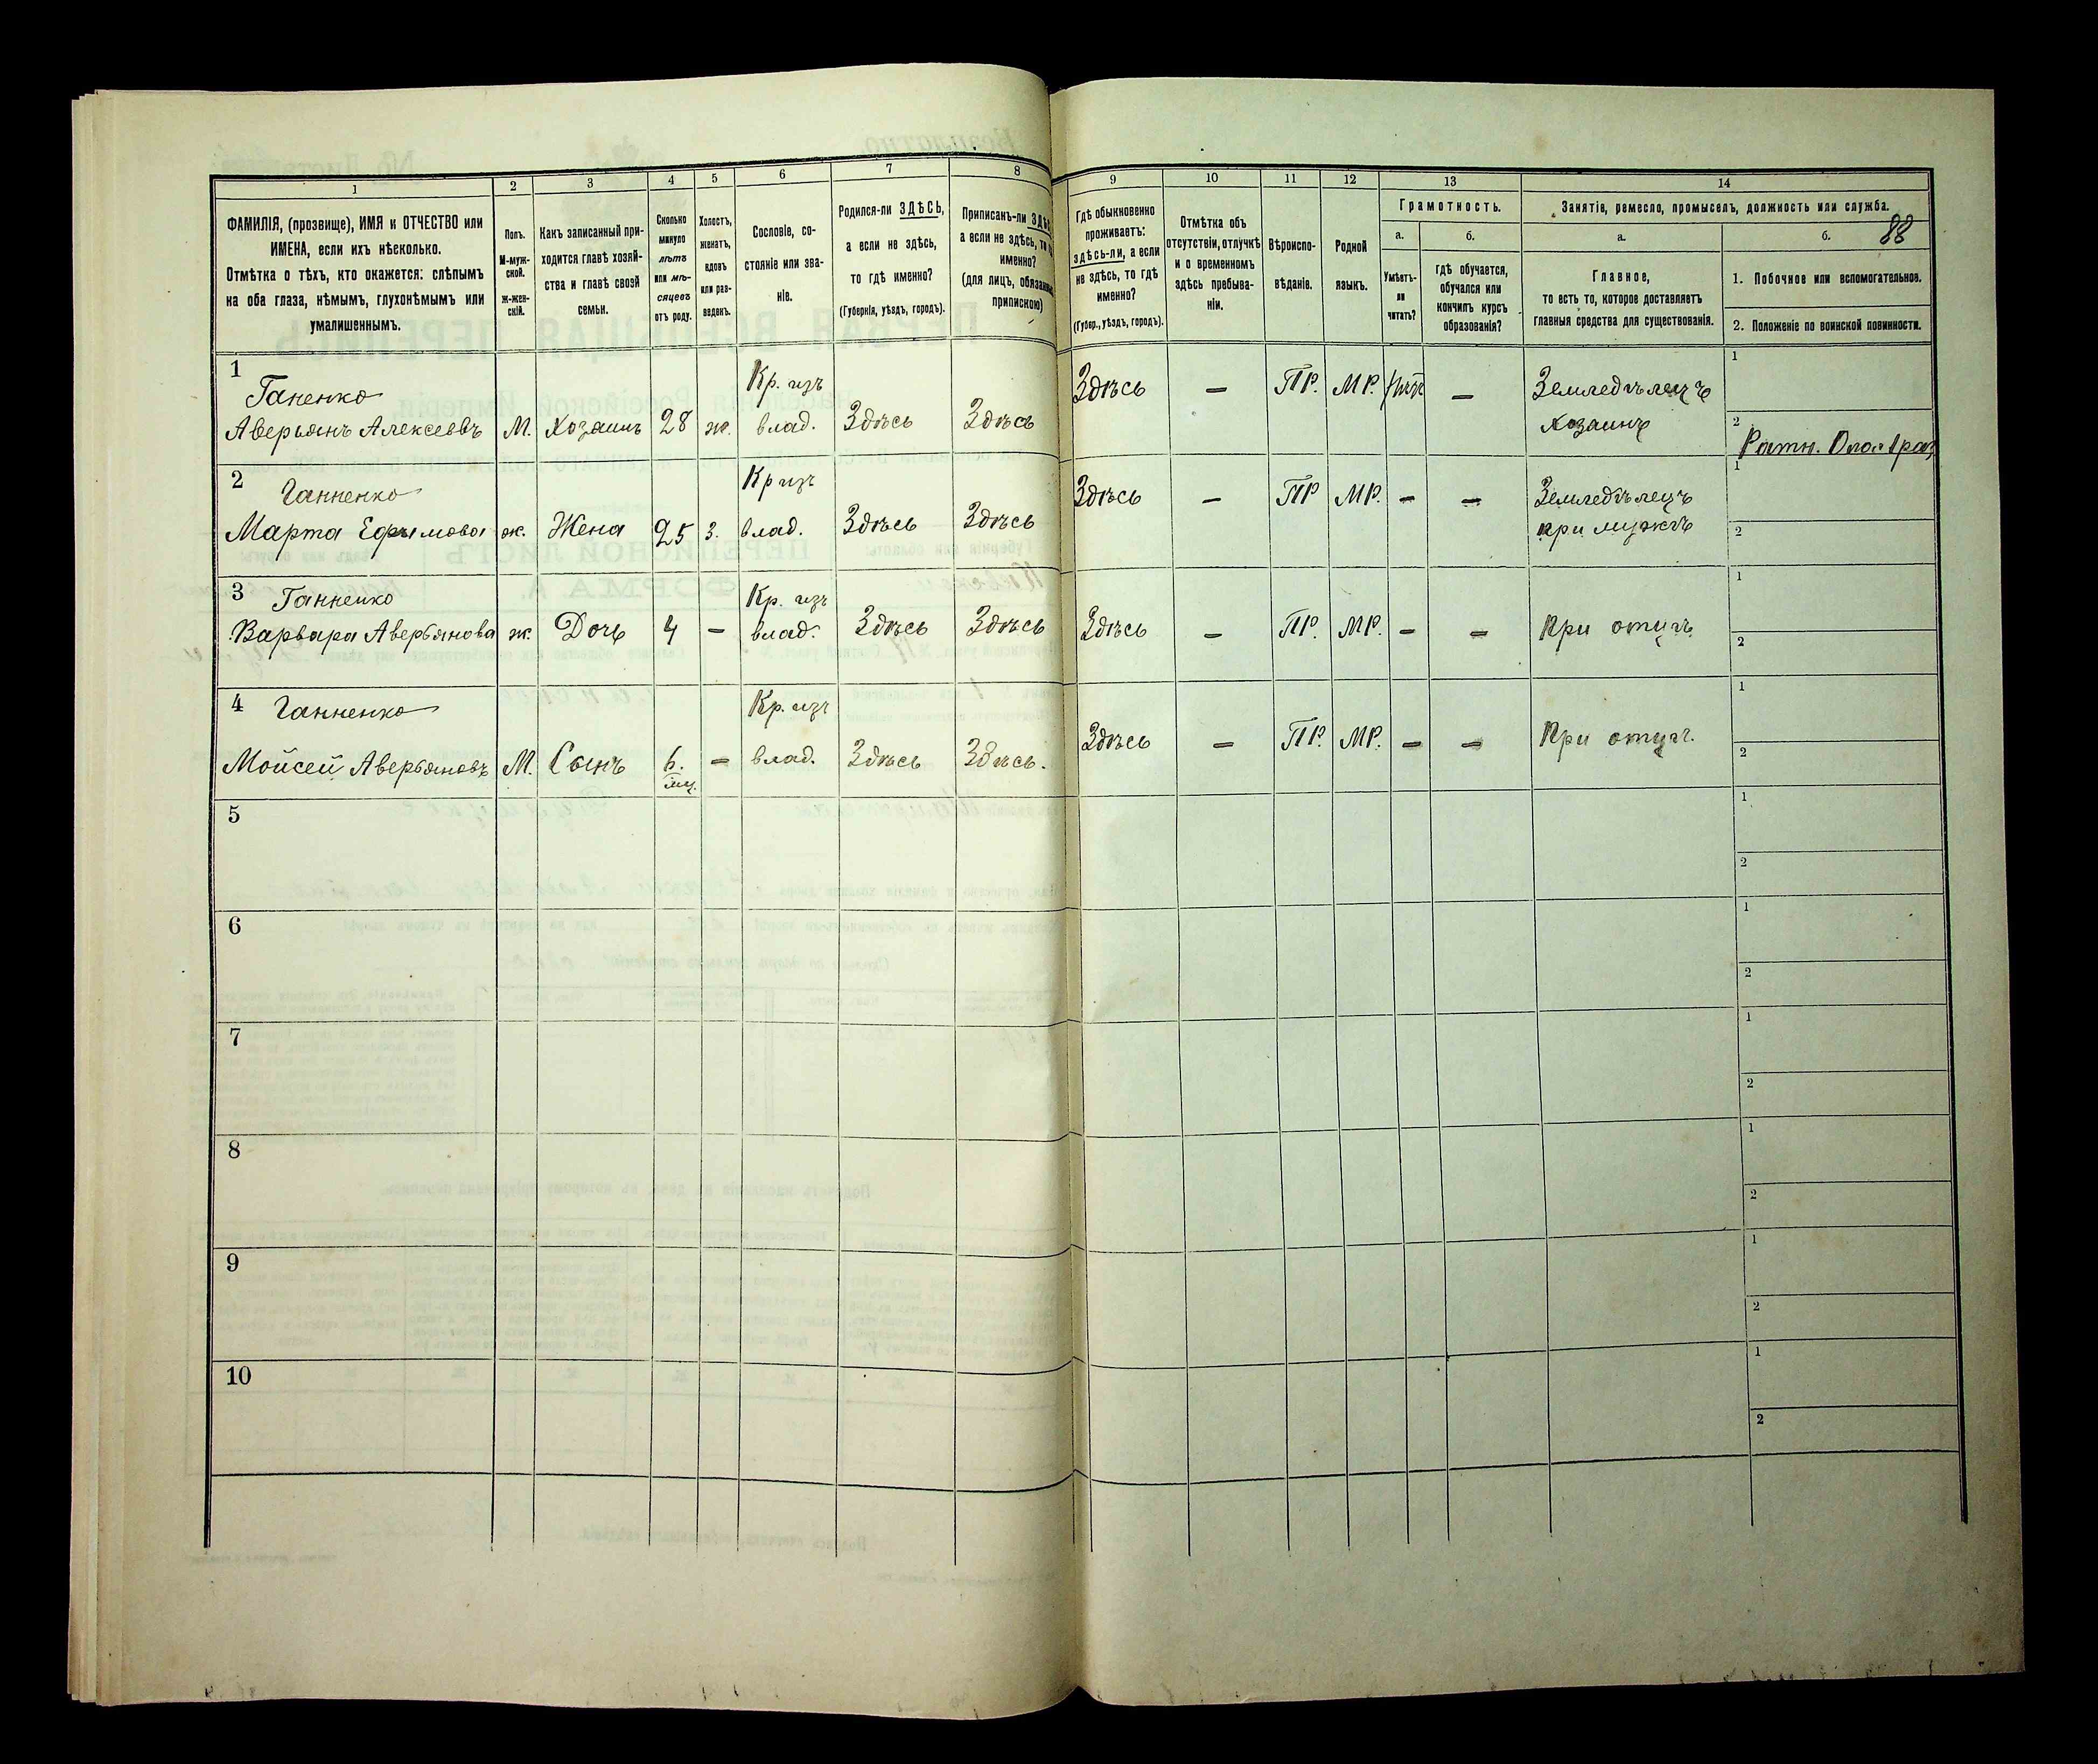 88
1
2
3
4
5
6
7
8
9
10
11
12
13
14
ФАМИЛІЯ, (прозвище), ИМЯ и ОТЧЕСТВО или
ИМЕНА, если ихъ нѣсколько.
Отмѣтка о тѣхъ, кто окажется: слѣпымъ
на оба глаза, нѣмымъ, глухонѣмымъ или
умалишеннымъ.
Полъ.
М-муж-
ской.
ж-жен-
скій.
Какъ записанный при-
ходится главѣ хозяй-
ства и главѣ своей
семьи.
Сколько
минуло
лѣтъ
или мѣ-
сяцевъ
отъ роду.
Холостъ,
женатъ,
вдовъ
или раз-
веденъ.
Сословіе, со-
стояніе или зва-
ніе.
Родился-ли ЗДѢСЬ,
а если не здѣсь,
то гдѣ именно?
(Губернія, уѣздъ, городъ).
Приписанъ-ли
а если не здѣсь, то
именно?
(для лицъ,
припискою)
Гдѣ обыкновенно
проживаетъ:
здѣсь-ли, а если
не здѣсь, то гдѣ
именно?
(Губер., уѣздъ, городъ).
Отмѣтка объ
отсутствіи, отлучкѣ
и о временномъ
здѣсь пребыва-
ніи.
Вѣроиспо-
вѣданіе.
Родной
языкъ.
Грамотность.
а.
Умѣетъ-
ли
читать?
б.
гдѣ обучается,
обучался или
кончилъ курсъ
образованія?
Занятіе, ремесло, промыселъ, должность или служба.
а.
Главное,
то есть то, которое доставляетъ
главныя средства для существованія.
б.
1. Побочное или вспомогательное.
2. Положеніе по воинской повинности.
1
Ганенко
Аверьянъ Алексеевъ
М.
Хозаинъ
28
ж.
Кр. изъ
влад.
Здѣсь
Здѣсь
Здѣсь
—
ПР.
МР.
нѣт
—
Земледѣлецъ
хозаинъ
1
2
Ратн.
2
Ганненко
Марта Ефимова
ж.
Жена
25
з.
Кр изъ
влад.
Здѣсь
Здѣсь
Здѣсь
—
ПР
МР.
—
—
Земледѣлецъ
при мужѣ
1
2
3
Ганненко
Варвара Аверьянова
ж.
Дочь
4
—
Кр. изъ
влад.
Здѣсь
Здѣсь
Здѣсь
—
ПР.
МР.
—
—
При отцѣ
1
2
4
Ганненко
Мойсей Аверьяновъ
М.
Сынъ
6.
мц.
—
Кр. изъ
влад.
Здѣсь
Здѣсь.
Здѣсь
—
ПР.
МР.
—
—
При отцѣ.
1
2
5
1
2
6
1
2
7
1
2
8
1
2
9
1
2
10
1
2